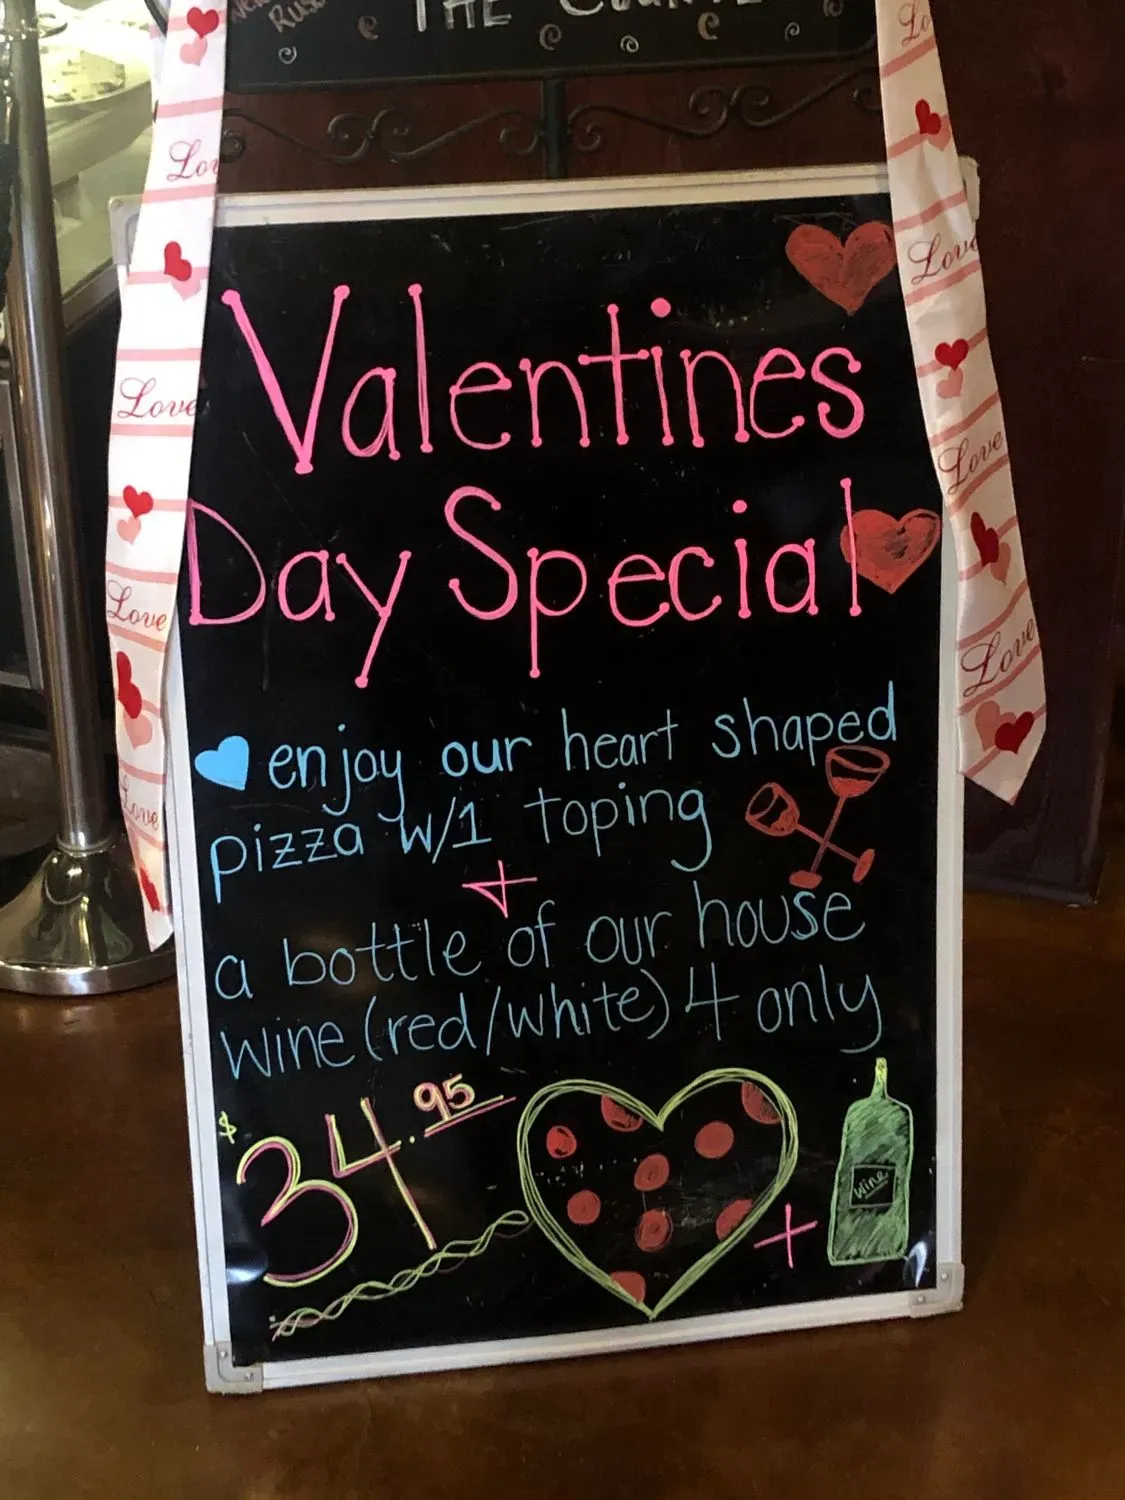 THE
Love
Love
Love
Love
Love
Love
Love
Love
Valentines
Day Special
enjoy our heart shaped
pizza w/1 toping
+
a bottle of our house
wine (red/white) 4 only
$34.95
+
wine